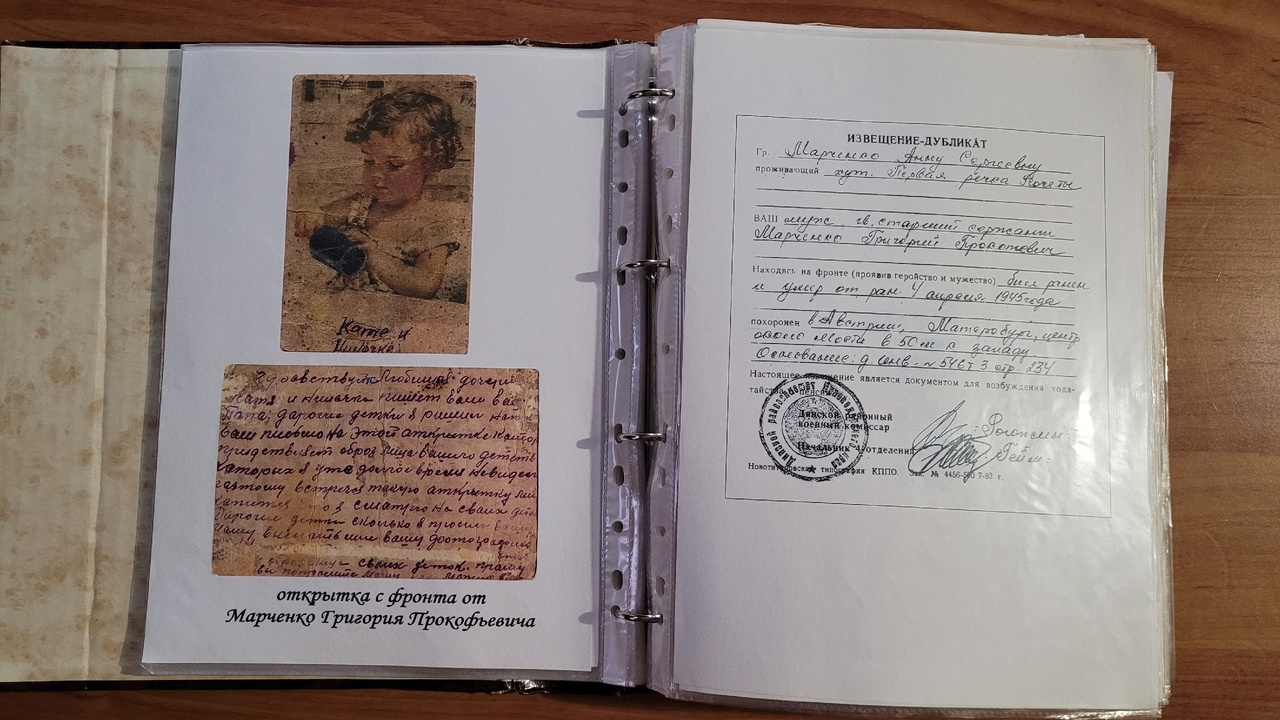 Кате и
Ниночке
Здравствуйте Любимые дочери
Катя и Ниночка пишет вам ваш
Папа, дорогие детки я решил нап
вам письмо на этой открытке кото
образ лица вашего детства
которых я уже долгое время не видел
поэтому встретя такую открытку
я сматрю на своих
Дорогие детки сколько я просил вашу
маму выслать мне вашу фотографию
своих деток. прошу
вы попросите маму
открытка с фронта от
Марченко Григория Прокофьевича
ИЗВЕЩЕНИЕ-ДУБЛИКАТ
Гр. Марченко Анну Сергеевну
проживающий хут. Первая речка Кочеты
ВАШ муж гв. старший сержант
Марченко Григорий Прокопович
Находясь на фронте (проявив геройство и мужество) был ранен
и умер от ран. 4 апреля 1945 года
похоронен в Австрии, Матерсбург, центр
в 50 м к западу
Основание: д инв. № 5467 3 стр. 234
Настоящее извещение является документом для возбуждения хода-
тайства пенсии
Динской районный
военный комиссар -Рогожин-
Начальник 4 отделения -Гейм-
Новотитаровская типография КППО. Зак. № 4456-500 7-82 г.